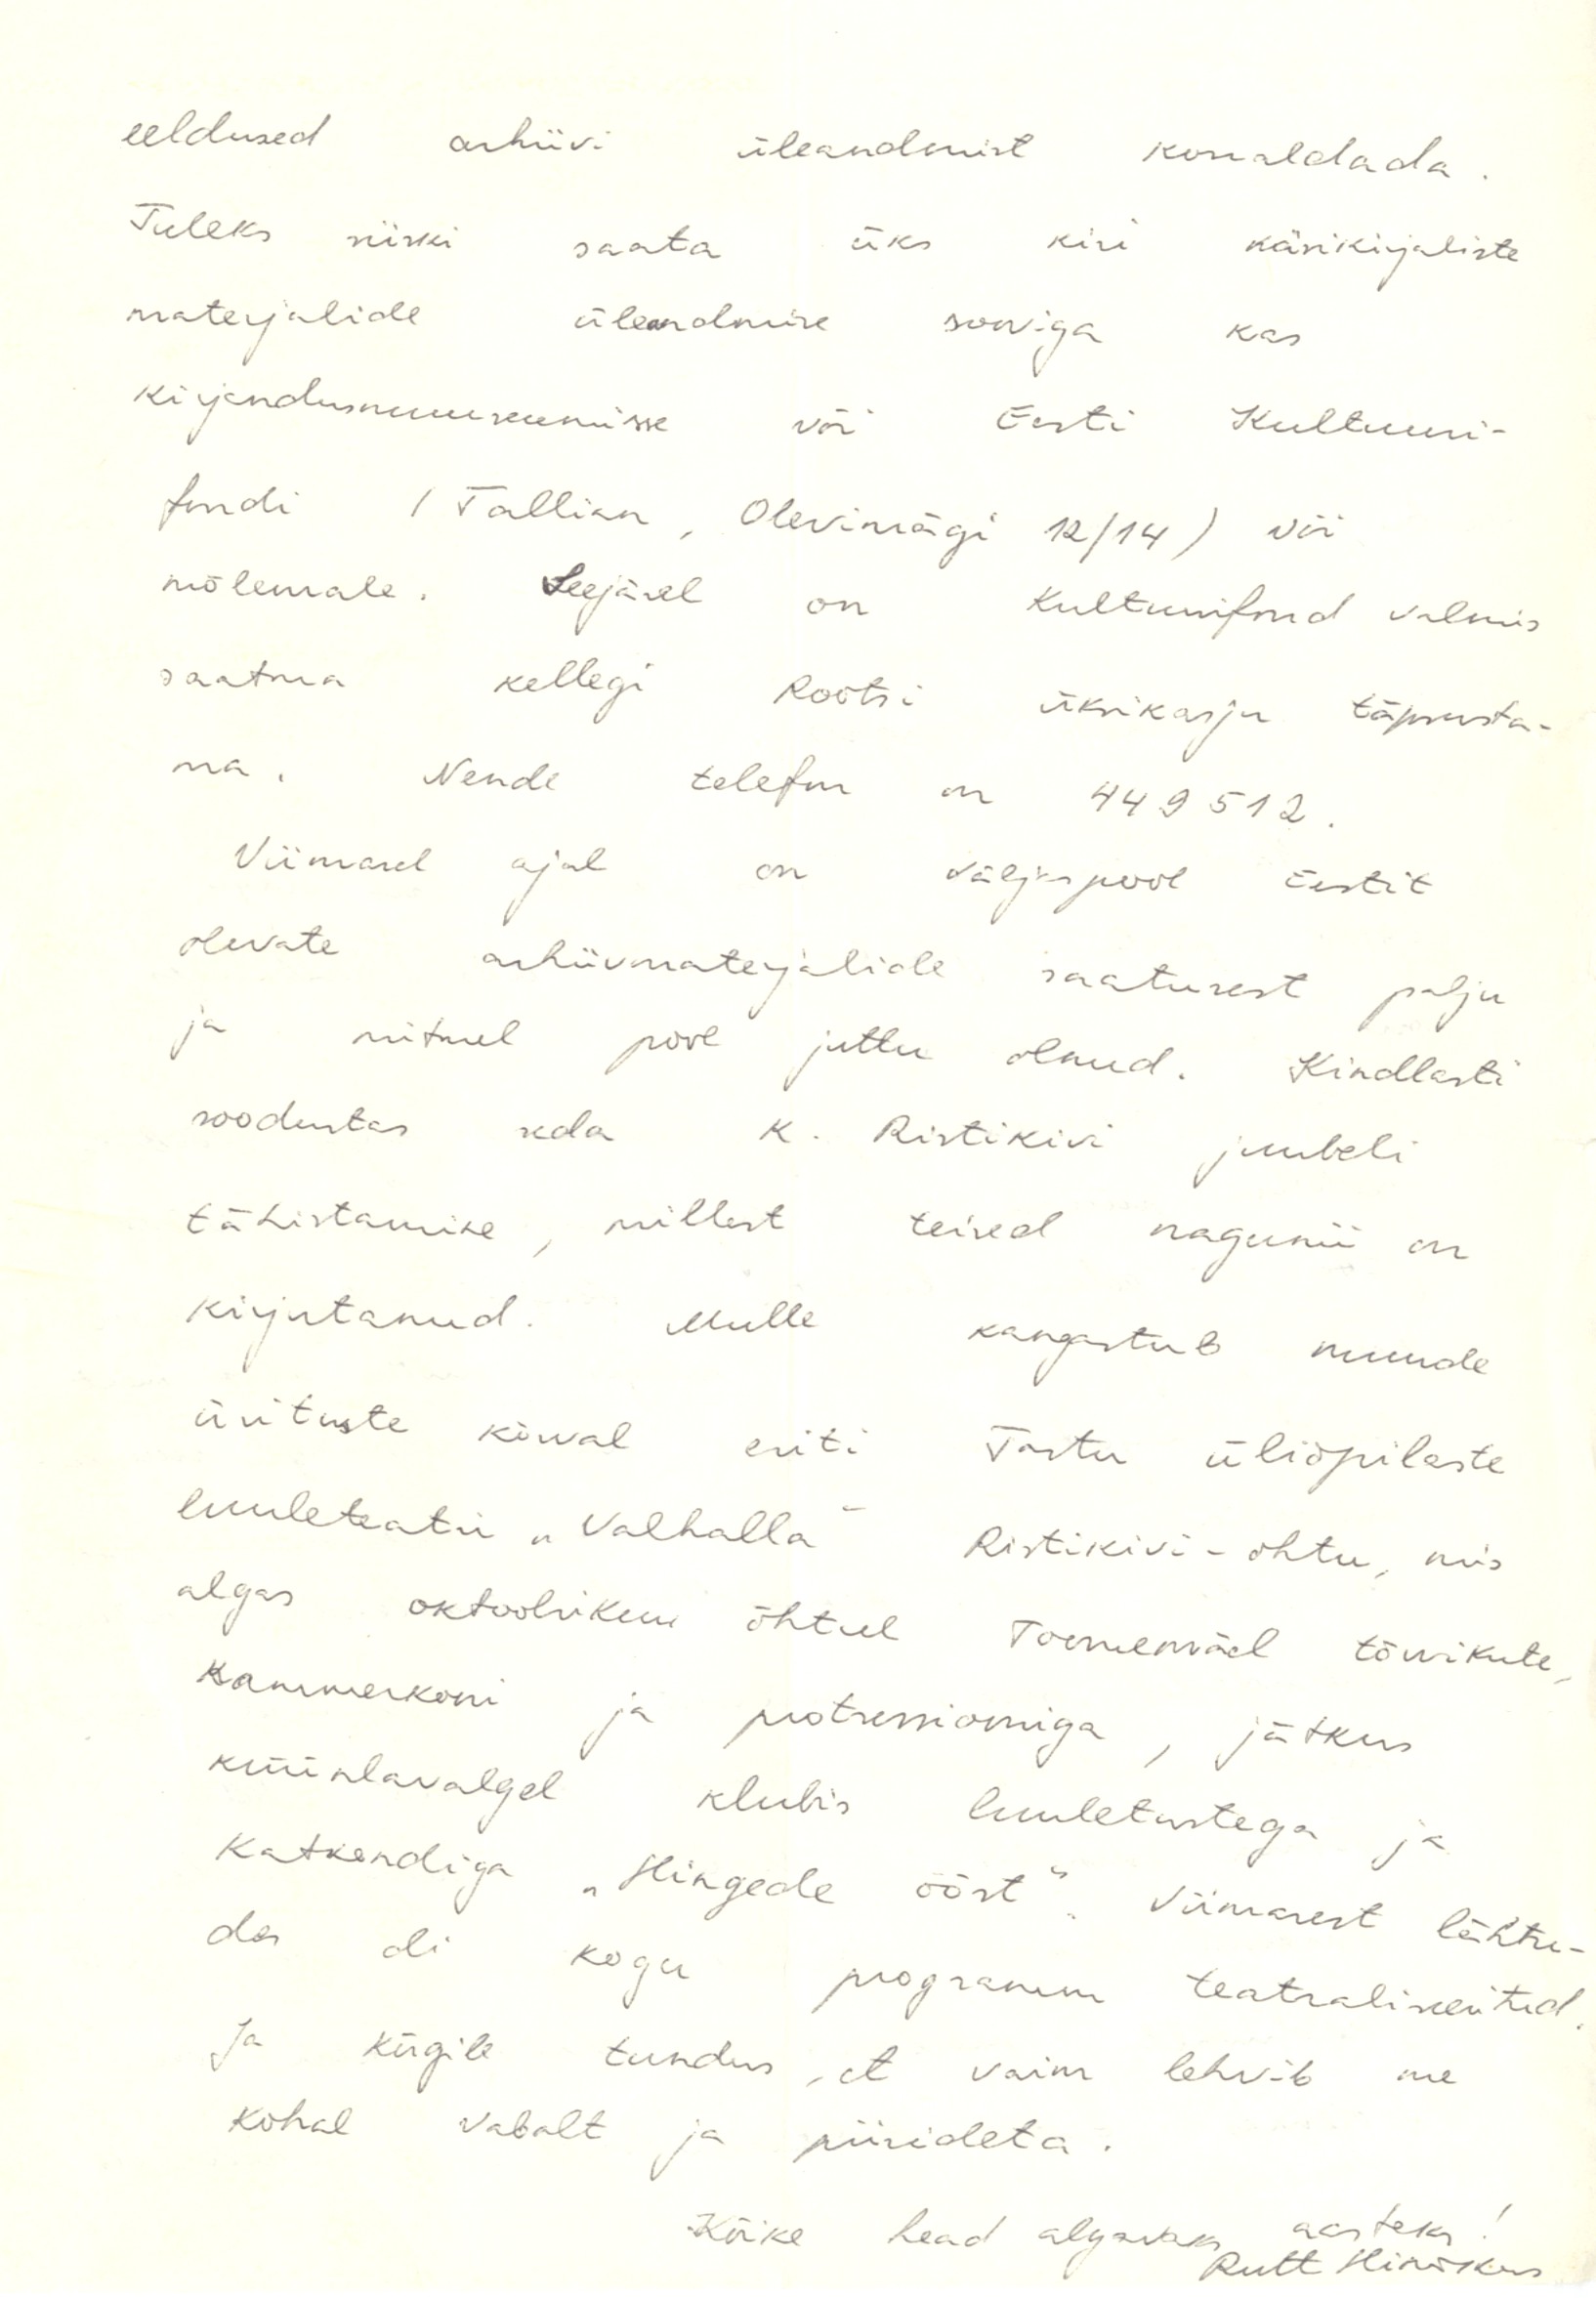 eeldused arhiivi üleandmist korraldada.
Tuleks siiski saata üks kiri käsikirjaliste
materjalide üleandmise sooviga kas
kirjandusmuuseumisse või Eesti Kultuuri-
fondi (Tallinn, Olevimägi 12/14) või
mõlemale. Seejärel on Kultuurifond valmis
saatma kellegi Rootsi üksikasju täpsusta-
ma. Nende telefon on 449512.
Viimasel ajal on väljaspool Eestit
olevate arhiivmaterjalide saatusest palju
ja mitmel pool juttu olnud. Kindlasti
soodustas seda K. Ristikivi juubeli
tähistamine, millest teised nagunii on
kirjutanud. Mulle kangastub muude
ürituste kõrval eriti Tartu üliõpilaste
luuleteatri „Valhalla" Ristikivi-õhtu, mis
algas oktoobrikuu õhtul Toomemäel tõrvikute,
kammerkoori ja protsessiooniga, jätkus
küünlavalgel klubis luuletustega ja
katkendiga „Hingede ööst". Viimasest lähtu-
des oli kogu programm teatraliseeritud.
Ja kõigile tundus, et vaim lehvib me
kohal vabalt ja piirideta.
Kõike head algavaks aastaks!
Rutt Hinrikus